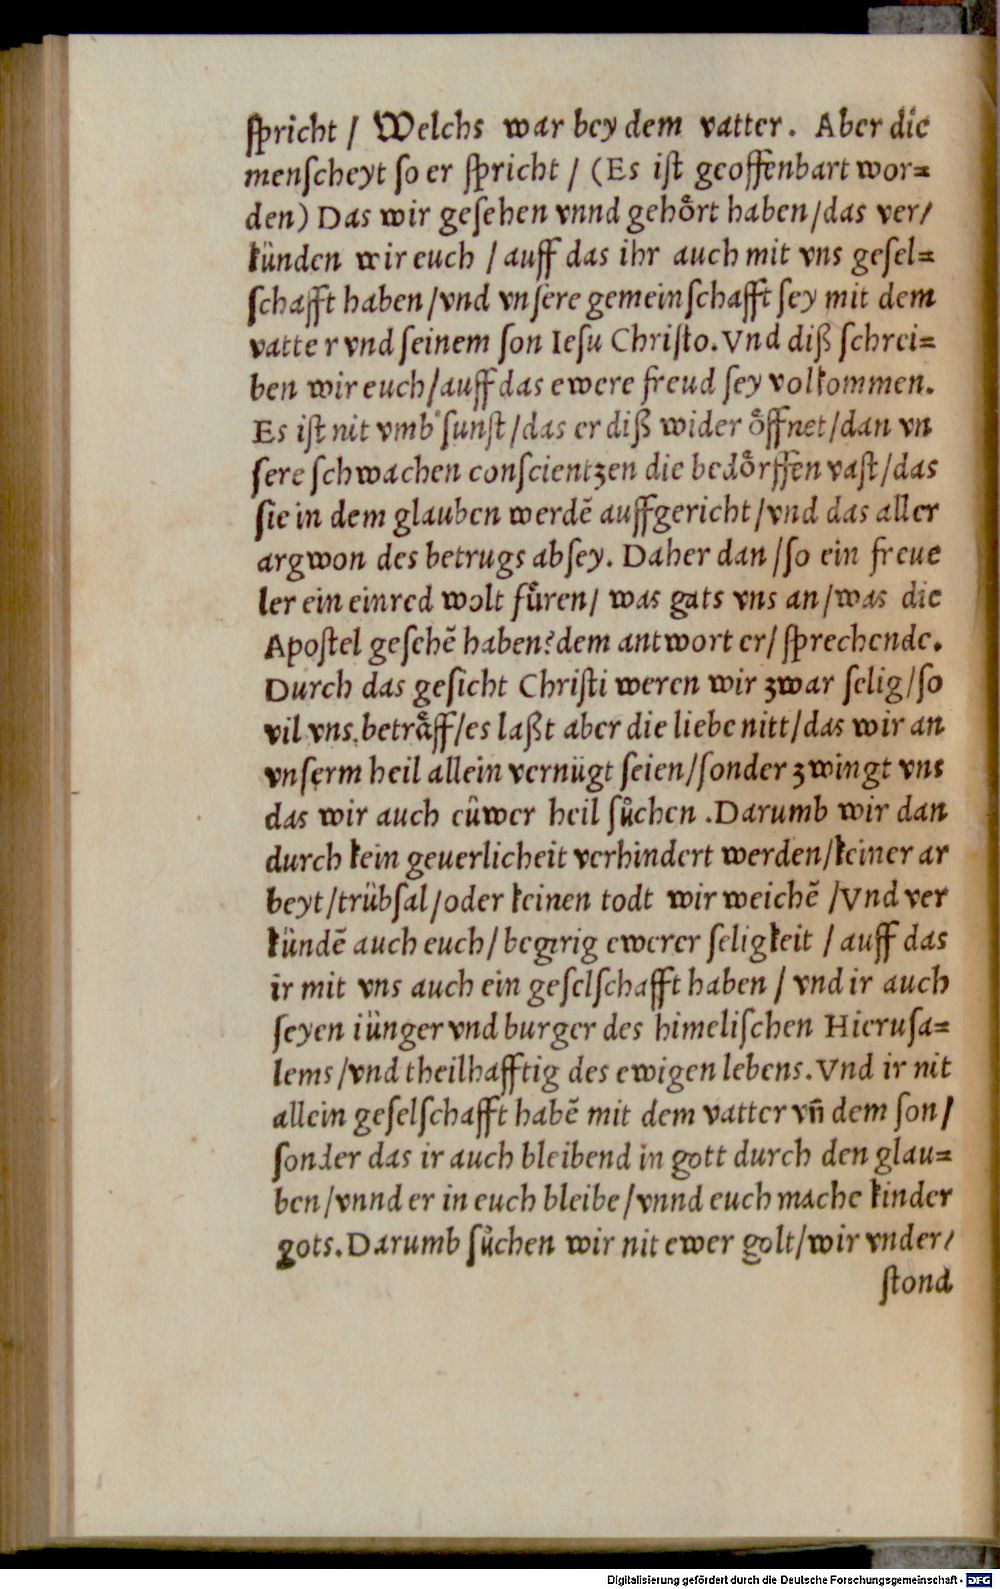 ſpricht / Welchs war bey dem vatter. Aber die
menſcheyt ſo er ſpricht / (Es iſt geoffenbart wor=
den) Das wir geſehen vnnd gehoͤrt haben/das ver/
künden wir euch / auff das ihr auch mit vns geſel=
ſchafft haben/vnd vnſere gemeinſchafft ſey mit dem
vatte r vnd ſeinem ſon Ieſu Chriſto. Vnd diß ſchrei=
ben wir euch/auff das ewere freud ſey volkommen.
Es iſt nit vmb ſunſt/das er diß wider oͤffnet/dan vn
ſere ſchwachen conſcientzen die bedoͤrffen vaſt/das
ſie in dem glauben werdẽ auffgericht/vnd das aller
argwon des betrugs abſey. Daher dan/ſo ein freue
ler ein einred wolt fuͤren/ was gats vns an/was die
Apoſtel geſehẽ haben? dem antwort er/ſprechende.
Durch das geſicht Chriſti weren wir zwar ſelig/ſo
vil vns betraͤff/es laßt aber die liebe nitt/das wir an
vnſerm heil allein vernügt ſeien/ſonder zwingt vns
das wir auch eüwer heil ſuͦchen .Darumb wir dan
durch kein geuerlicheit verhindert werden/keiner ar
beyt/trübſal/oder keinen todt wir weichẽ /Vnd ver
kündẽ auch euch/begirig ewerer ſeligkeit / auff das
ir mit vns auch ein geſelſchafft haben / vnd ir auch
ſeyen iünger vnd burger des himeliſchen Hieruſa=
lems/vnd theilhafftig des ewigen lebens. Vnd ir nit
allein geſelſchafft habẽ mit dem vatter vñ dem ſon/
ſonder das ir auch bleibend in gott durch den glau=
ben/vnnd er in euch bleibe/vnnd euch mache kinder
gots. Darumb ſuͦchen wir nit ewer golt/wir vnder/
ſtond
Digitalisierung gefördert durch die Deutsche Forschungsgemeinschaft - DFG